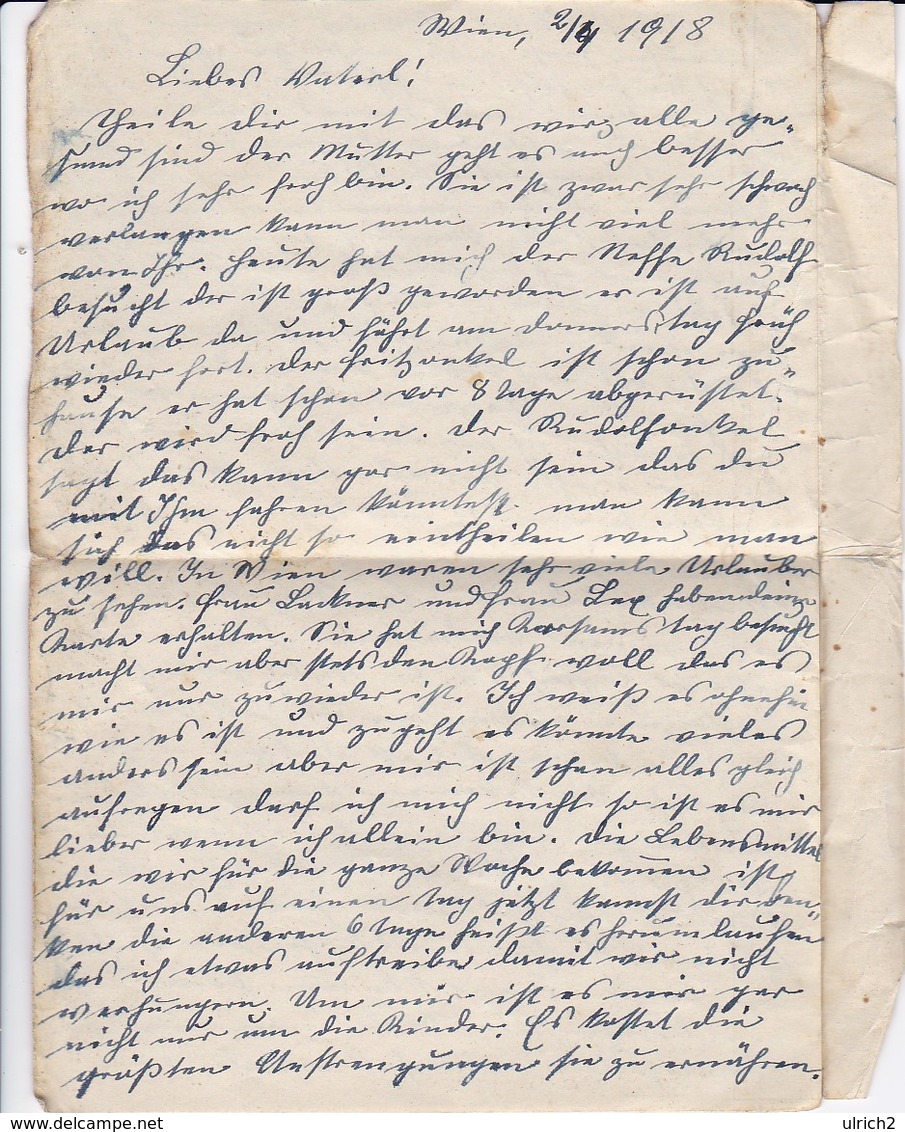 Wien, 2/4 1918
Liebes Vaterl!
Theile dir mit das wir alle ge„
sund sind der Mutter geht es auch besser
wo ich sehr froh bin. Sie ist zwar sehr schwach
verlangen kann man nicht viel mehr
von Ihr. Heute hat mich der Neffe Rudolf
besucht der ist groß geworden er ist auf
Urlaub da und fährt am Donnerstag früh
wieder fort. Der Fritzonkel ist schon zu„
hause er hat schon vor 8 Tage abgerüstet.
Der wird froh sein. Der Rudolfonkel
sagt das kann gar nicht sein das du
mit Ihm fahren könntest. man kann
sich das nicht so eintheilen wie man
will. In Wien waren sehr viele Urlauber
zu sehen. Frau Lackner und Frau Lex haben deine
Karte erhalten. Sie hat mich Karsamstag besucht
macht mir aber stets den Kopf voll das es
mir nur zuwieder ist. Ich weiß es ohnehin
wie es ist und zugeht es könnte vieles
anders sein aber mir ist schon alles gleich
aufregen darf ich mich nicht so ist es mir
lieber wenn ich allein bin. Die Lebensmittel
die wir für die ganze Woche bekommen ist
für uns auf einen Tag jetzt kannst dir den„
ken die anderen 6 Tage heißt es herumlaufen
das ich etwas auftreibe damit wir nicht
verhungern. Um mir ist es mir gar
nicht nur um die Kinder. Es kostet die
größten Anstrengungen sie zu ernähren.
ulrich2